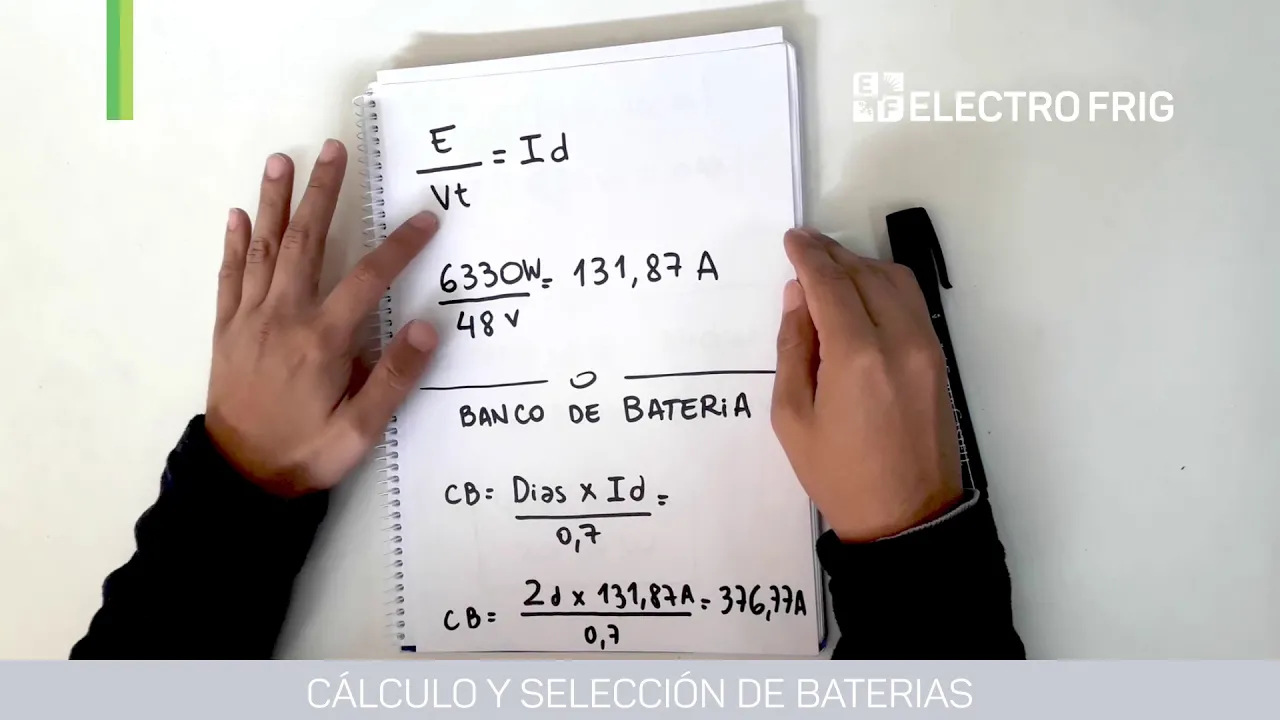 EF ELECTRO FRIG
E
Vt
= Id
6330W
48 V
= 131,87 A
O
BANCO DE BATERiA
CB= Dias x Id =
0,7
CB= 2d x 131,87A = 376,77A
0,7
CÁLCULO Y SELECCIÓN DE BATERIAS